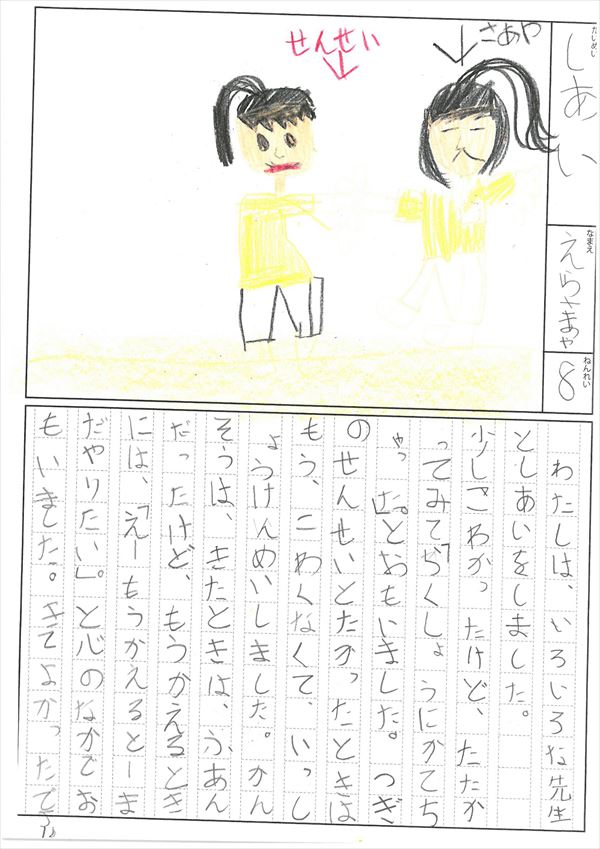 せんせい
さあや
だいめい
しあい
なまえ
えらさあや
ねんれい
8
わたしは、いろいろな先生
としあいをしました。
少しこわかったけど、たたか
ってみて「らくしょうにかてち
ゃった。」とおもいました。つぎ
のせんせいとたかったときは
もう、こわくなくて、いっし
ょうけんめいしました。かん
そうは、きたときは、ふあん
だったけど、もうかえるとき
には、「えーもうかえるとーま
だやりたい」。と心のなかでお
もいました。きてよかったで
す。